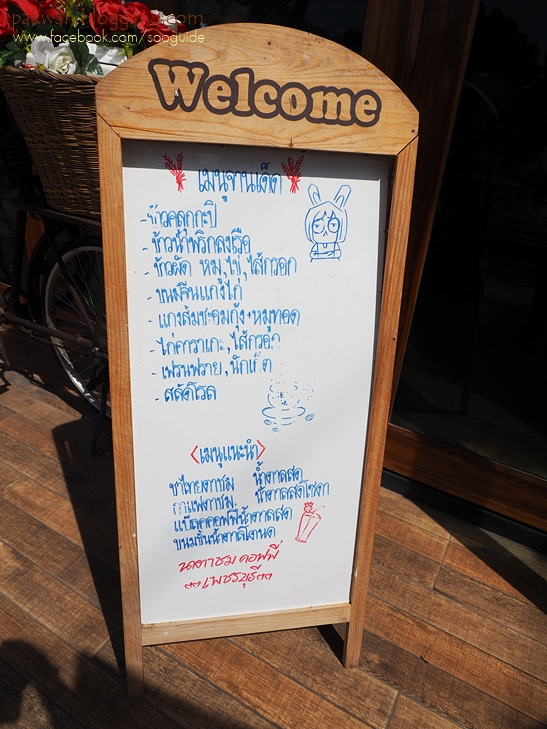 www.facebook.com/saoguide
Welcome
เมนูจานเด็ด
-ข้าวคลุกกะปิ
-ข้าวน้ำพริกลงเรือ
-ข้าวผัด หมู,ไก่,ไส้กรอก
-ขนมจีนแกงไก่
-แกงส้มชะอมกุ้ง+หมูทอด
-ไก่คาราเกะ,ไส้กรอก
-เฟรนฟราย,นักเก็ต
-สลัดโรล
<เมนูแนะนำ>
ชาไทยตาชม น้ำตาลสด
กาแฟตาชม. น้ำตาลสดโซดา
แบล็คคอฟฟี่น้ำตาลสด
ขนมชั้นน้ำตาลโตนด
นาตาชม คอฟฟี่
เพชรบุรี